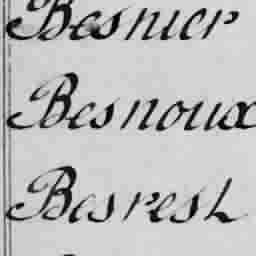 Besnier
Besnoux
Besresh